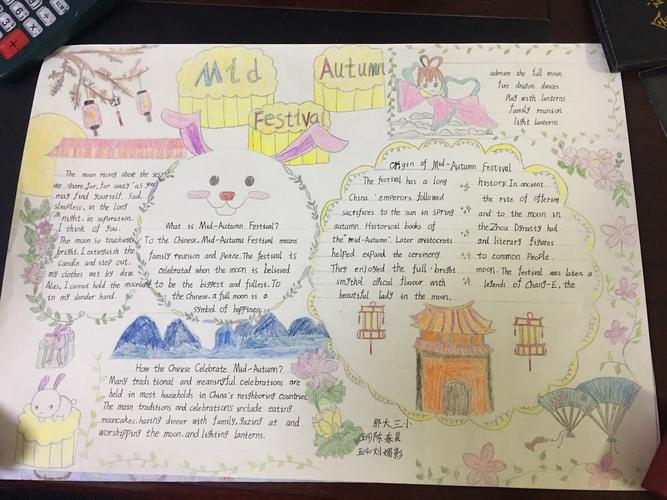 Mid Autumn
Festival
admire the full moon
fire dragon dances
Play with lanterns
family reunion
light lanterns
The moon rising above the sea
we share far, far away as you
may find yourself. Sad
sleepless, in the long
night, in separation.
I think of you.
The moon so touching
bright. I extinguish the
Candle and step out,
my clothes wet by dew.
Alas, I cannot hold the moonlight
in my slender hand.
What is Mid-Autumn Festival?
To the Chinese, Mid-Autumn Festival means
family reunion and Peace. The festival is
celebrated when the moon is believed
to be the biggest and fullest. To
the Chinese, a full moon is a
symbol of happiness
Origin of Mid-Autumn Festival
The festival has a long history. In ancient
China emperors followed the rite of offering
sacrifices to the sun in spring and to the moon in
autumn. Historical books of the Zhou Dynasty had
the "mid-Autumn". Later aristocrats and literary figures
helped expand the ceremony to common People.
They enjoyed the full, bright moon. The festival was later a
legends of Chang-E, the
beautiful lady in the moon.
How the Chinese Celebrate Mid-Autumn?
Many traditional and meaningful celebrations are
held in most households in China's neighboring countries
The main traditions and celebrations include eating
mooncakes, having dinner with family, gazing at and
worshipping the moon, and lighting lanterns.
那大三小
陈春晨
刘媚影